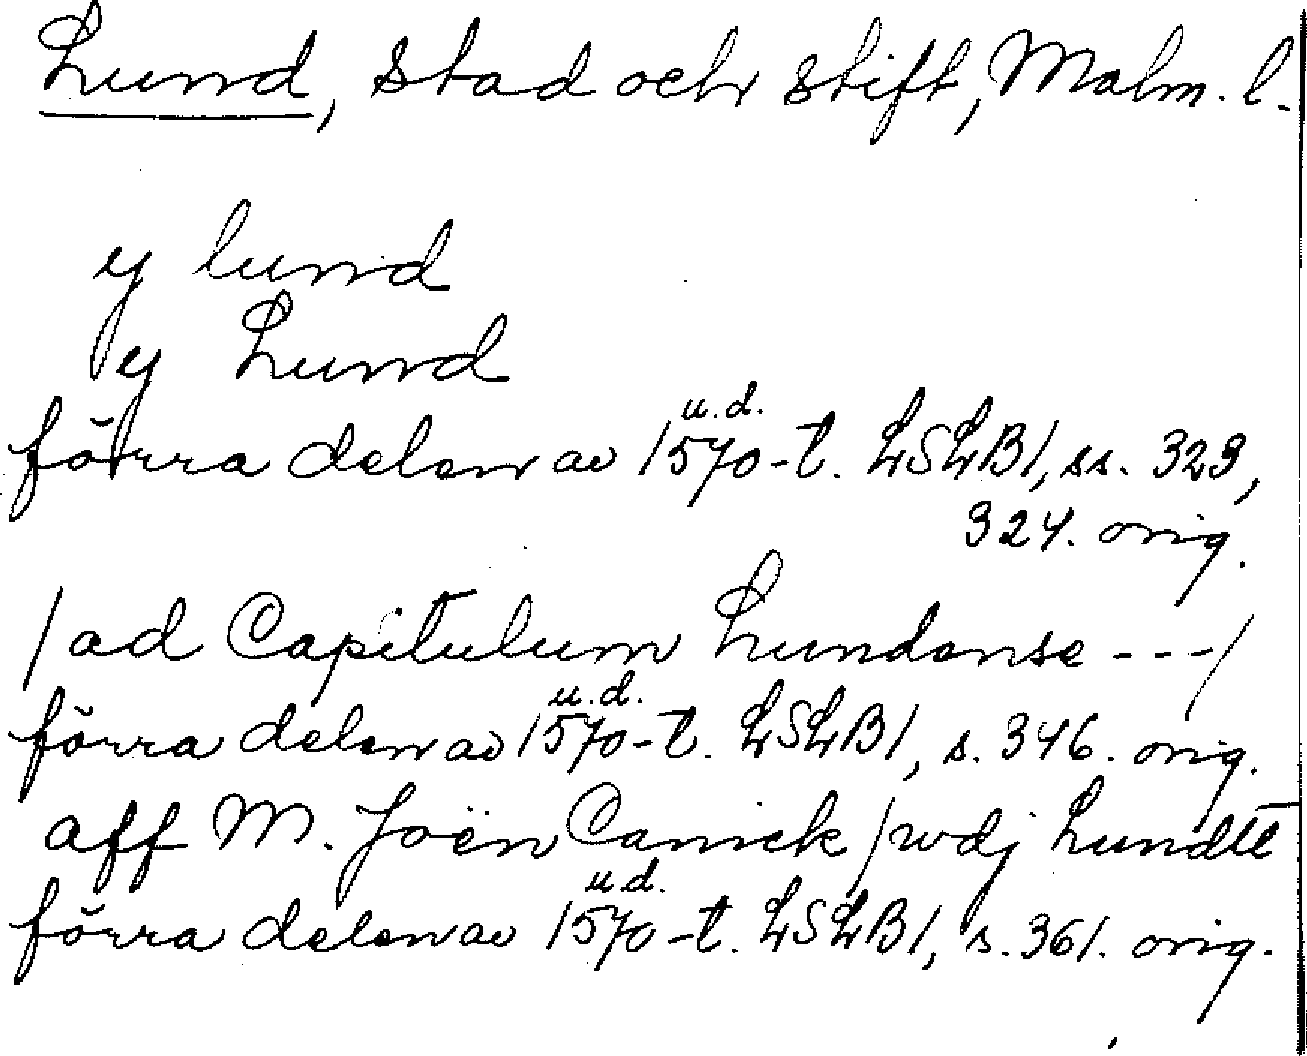 Lund, stad och stift, Malm. l.
y lund
y Lund
u. d.
förra delen av 1570-t. LSLB1, ss. 323,
324. orig.
/ad Capitulum Lundense ---/
u. d.
förra delen av 1570-t. LSLB1, s. 346. orig.
aff M. Joën Canick / wdj Lundtt
u. d.
förra delen av 1570-t. LSLB1, s. 361. orig.